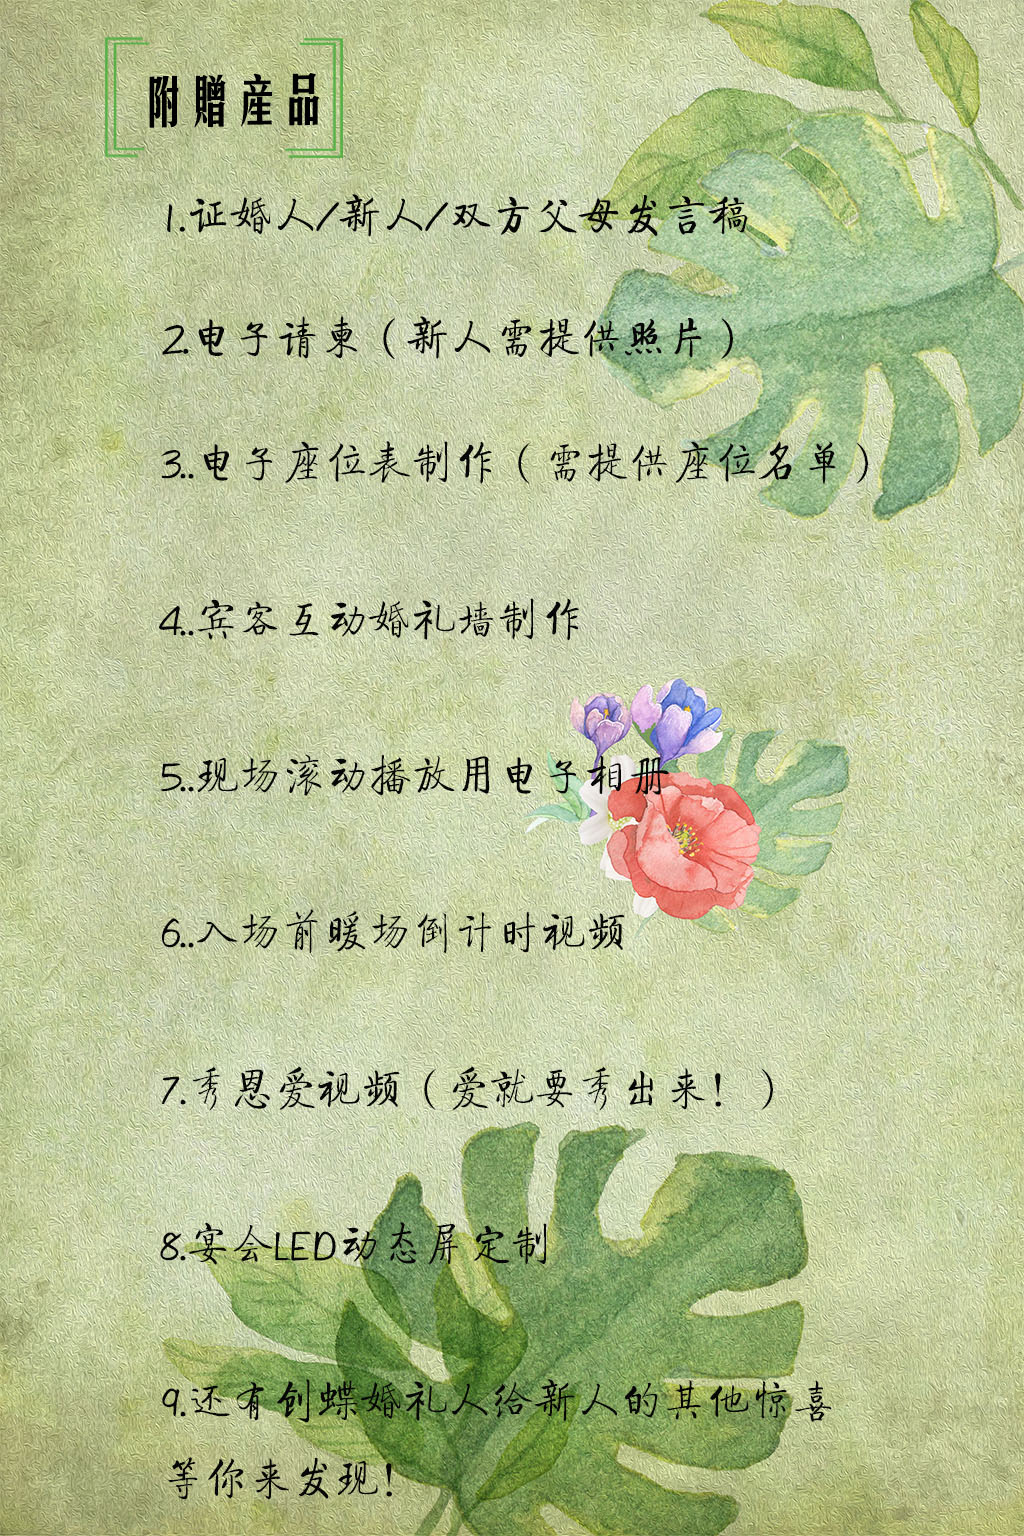 附赠産品
1.证婚人/新人/双方父母发言稿
2.电子请柬（新人需提供照片）
3..电子座位表制作（需提供座位名单）
4..宾客互动婚礼墙制作
5..现场滚动播放用电子相册
6..入场前暖场倒计时视频
7.秀恩爱视频（爱就要秀出来！）
8.宴会LED动态屏定制
9.还有创蝶婚礼人给新人的其他惊喜
等你来发现！